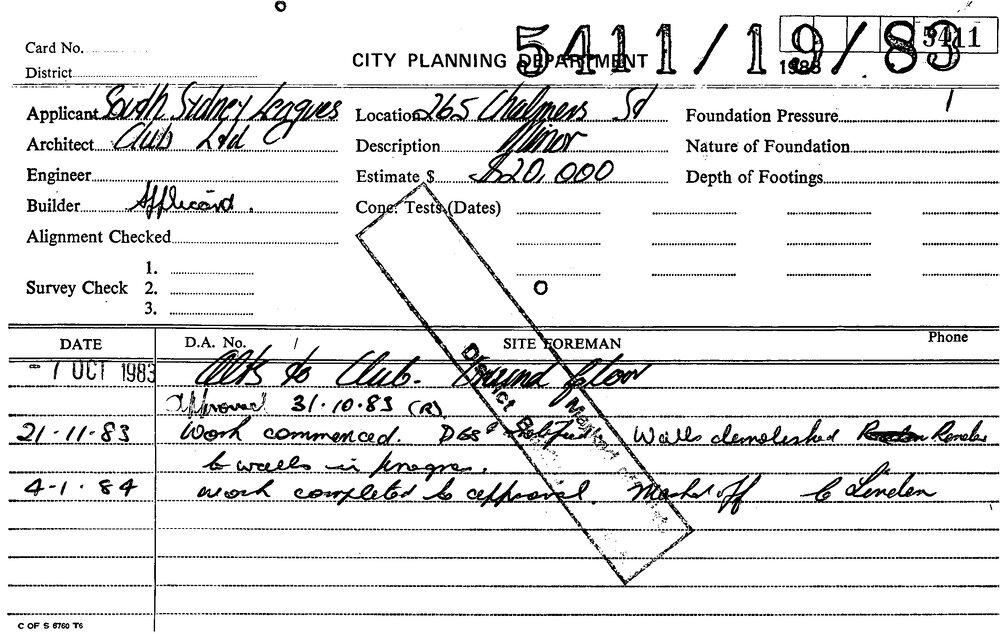 5411/19/83
5411
1983
Card No.
CITY PLANNING DEPARTMENT
District
Applicant South Sydney Leagues Location 265 Chalmers St Foundation Pressure
Architect Club Ltd Description Minor Nature of Foundation
Engineer Estimate $ $20,000 Depth of Footings
Builder Applicant. Conc. Tests (Dates)
Alignment Checked
1.
Survey Check 2.
3.
DATE D.A. No. SITE FOREMAN Phone
- 7 OCT 1983 Alts to Club. Ground floor
approved 31.10.83 (R)
21-11-83 Work commenced. DBS notified Walls demolished Render
to walls in progress.
4-1-84 work completed to approval. Marked off C Linden
District
Marked
C OF S 6760 T6